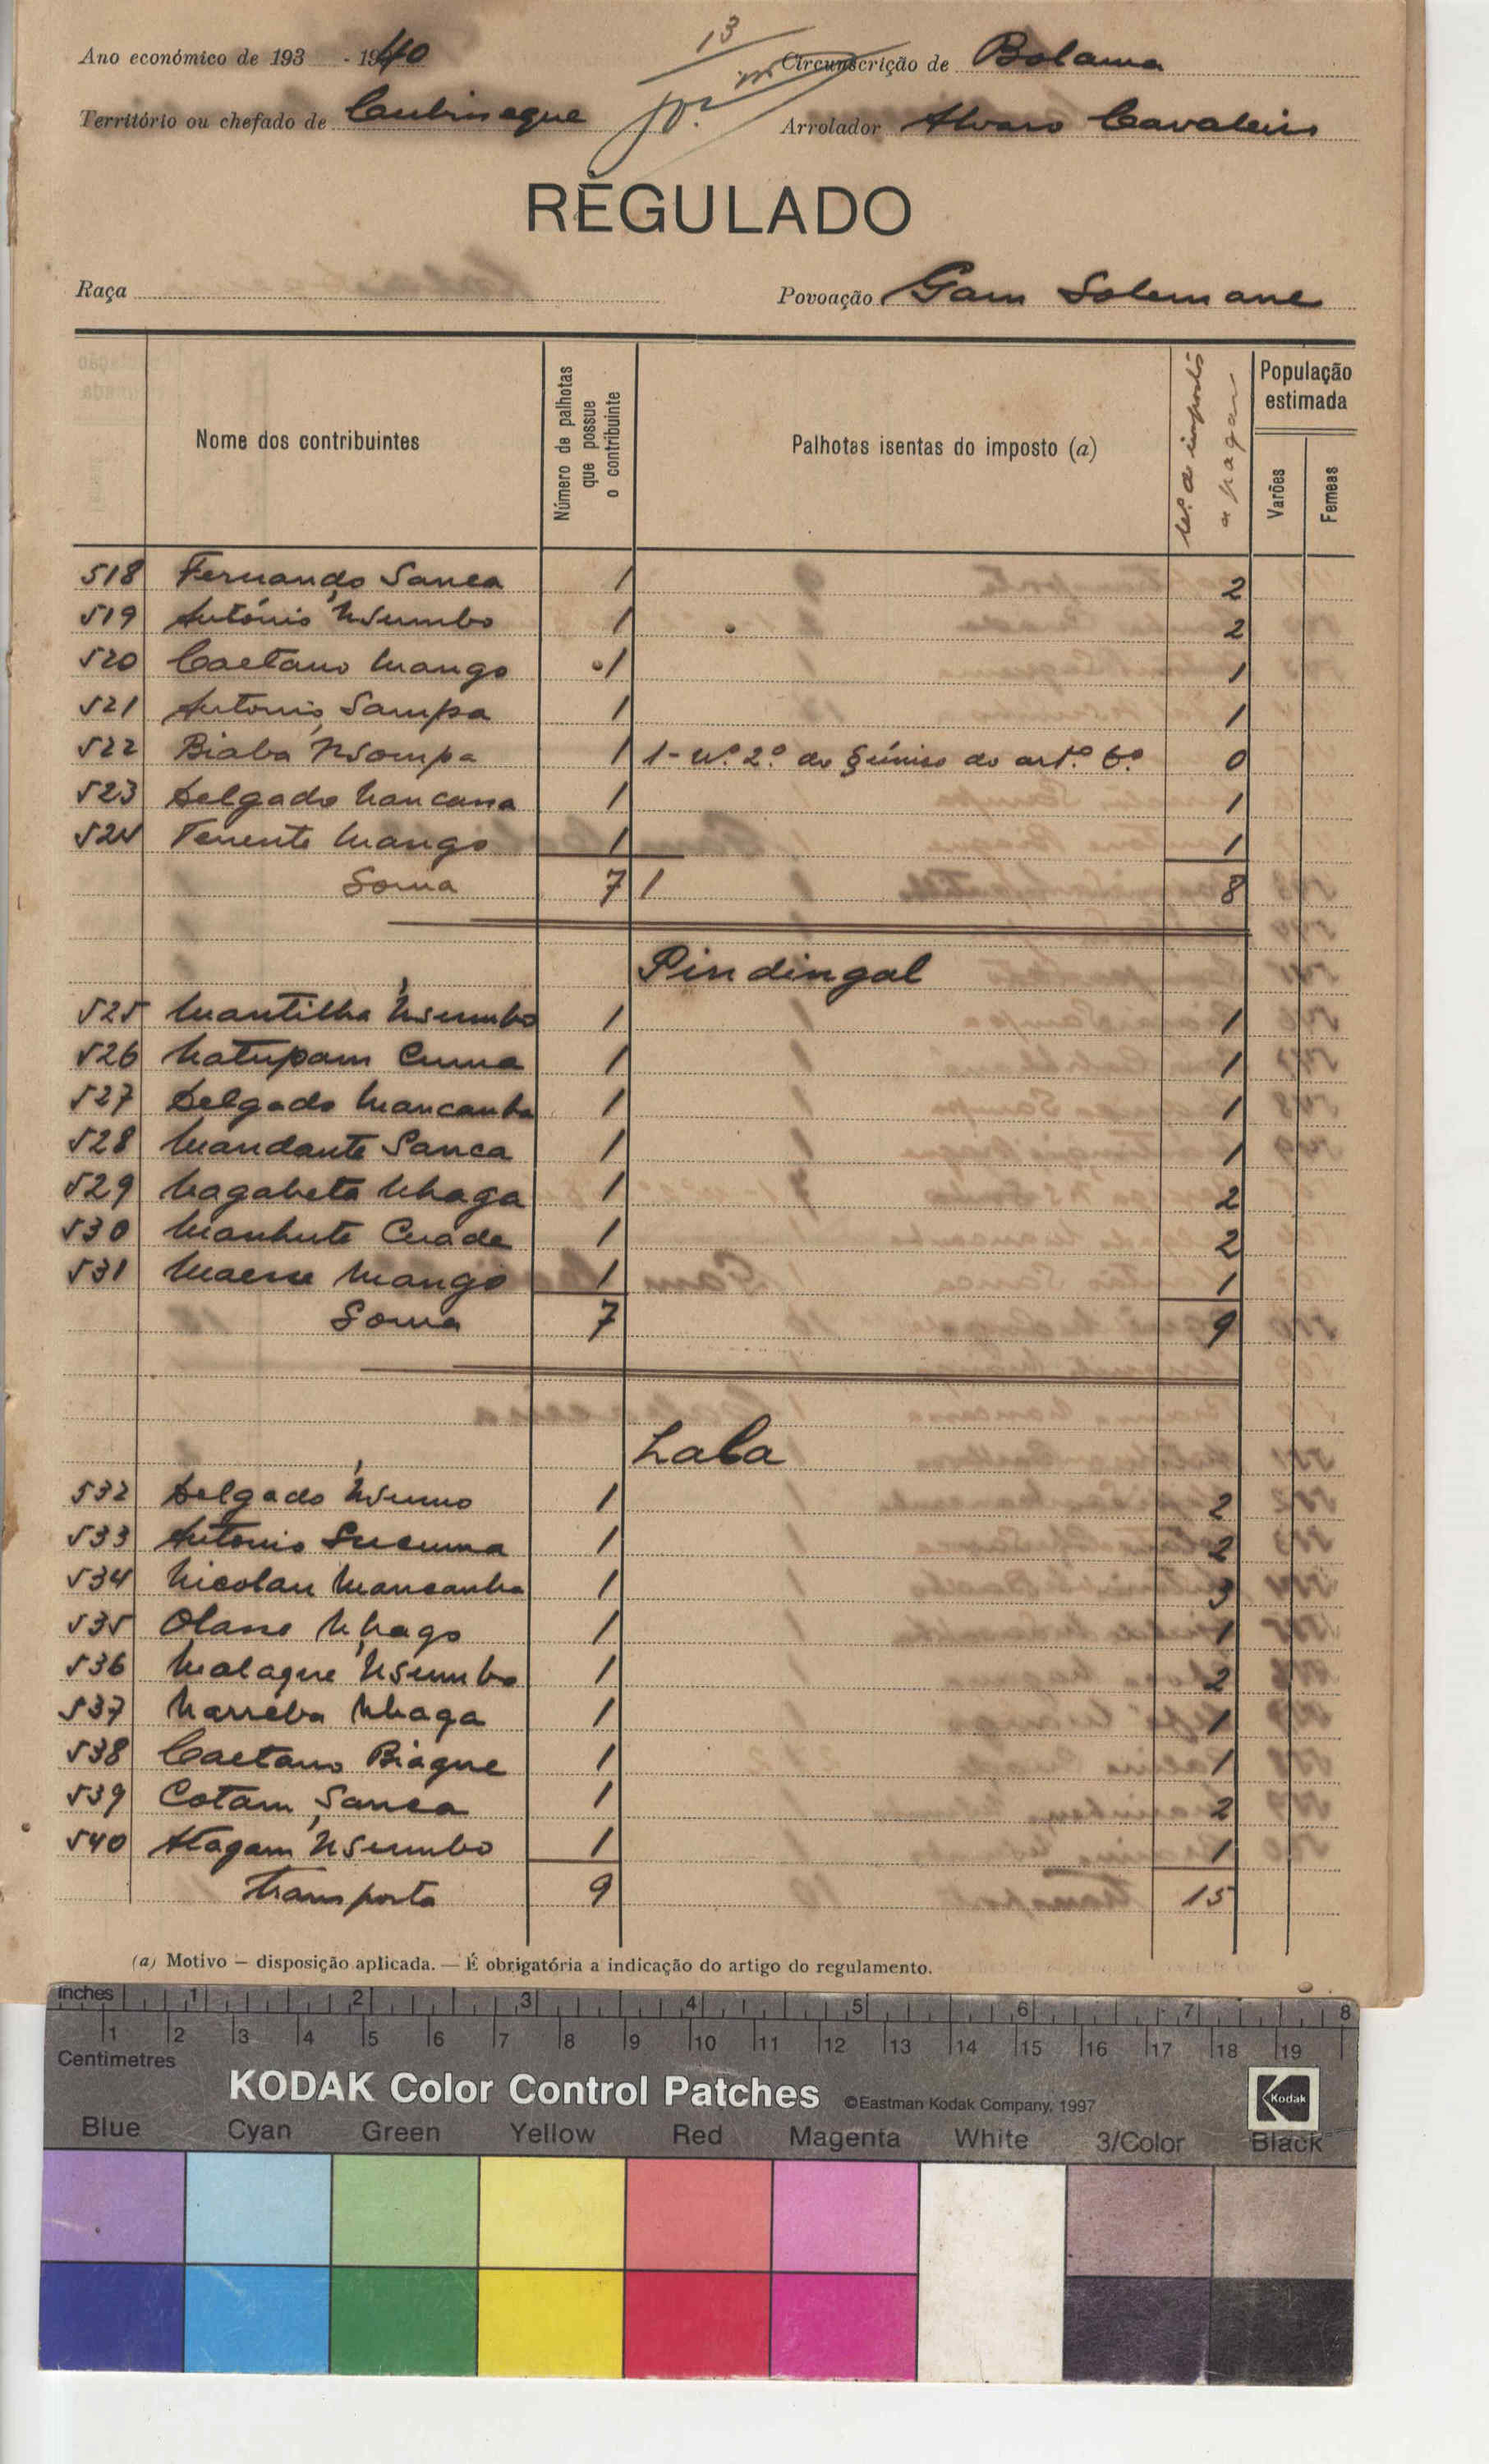 Ano económico de 193 - 1940
13
Circunscrição de Bolama
Território ou chefado de
Arrolador Alvaro Cavaleiro
REGULADO
Raça
Povoação Gam Solemane
Nome dos contribuintes
Número de palhotas que possue o contribuinte
Palhotas isentas do imposto (a)
N.º de impostos a pagar
População estimada
Varões
Femeas
518 Fernando Sanca 1 2
519 António N'Sumbo 1 2
520 Caetano Mango 1 1
521 Antonio Sampa 1 1
522 Biaba N'Sompa 1 1 - n.º 2.º do § único do art.º 6.º 0
523 Delgado 1 1
524 Tenente Mango 1 1
Soma 7 1 8
Pindingal
525 Mantilha N'sumbo 1 1
526 Natupam Cuma 1 1
527 Delgado Mancanha 1 1
528 Mandante Sanca 1 1
529 Nhaga 1 2
530 Manhute Cuade 1 2
531 Mango 1 1
Soma 7 9
Lala
532 Delgado 1 2
533 Antonio Sucuma 1 2
534 Nicolau Mancanha 1 3
535 Olasse Nhago 1 1
536 Malague N'sumbo 1 2
537 Narreba Nhaga 1 1
538 Caetano Biague 1 1
539 Cotam Sanca 1 2
540 Atagam N'Sumbo 1 1
Transporte 9 15
(a) Motivo — disposição aplicada. — É obrigatória a indicação do artigo do regulamento.
inches 1 2 3 4 5 6 7 8
1 2 3 4 5 6 7 8 9 10 11 12 13 14 15 16 17 18 19
Centimetres
KODAK Color Control Patches ©Eastman Kodak Company, 1997 Kodak
Blue Cyan Green Yellow Red Magenta White 3/Color Black